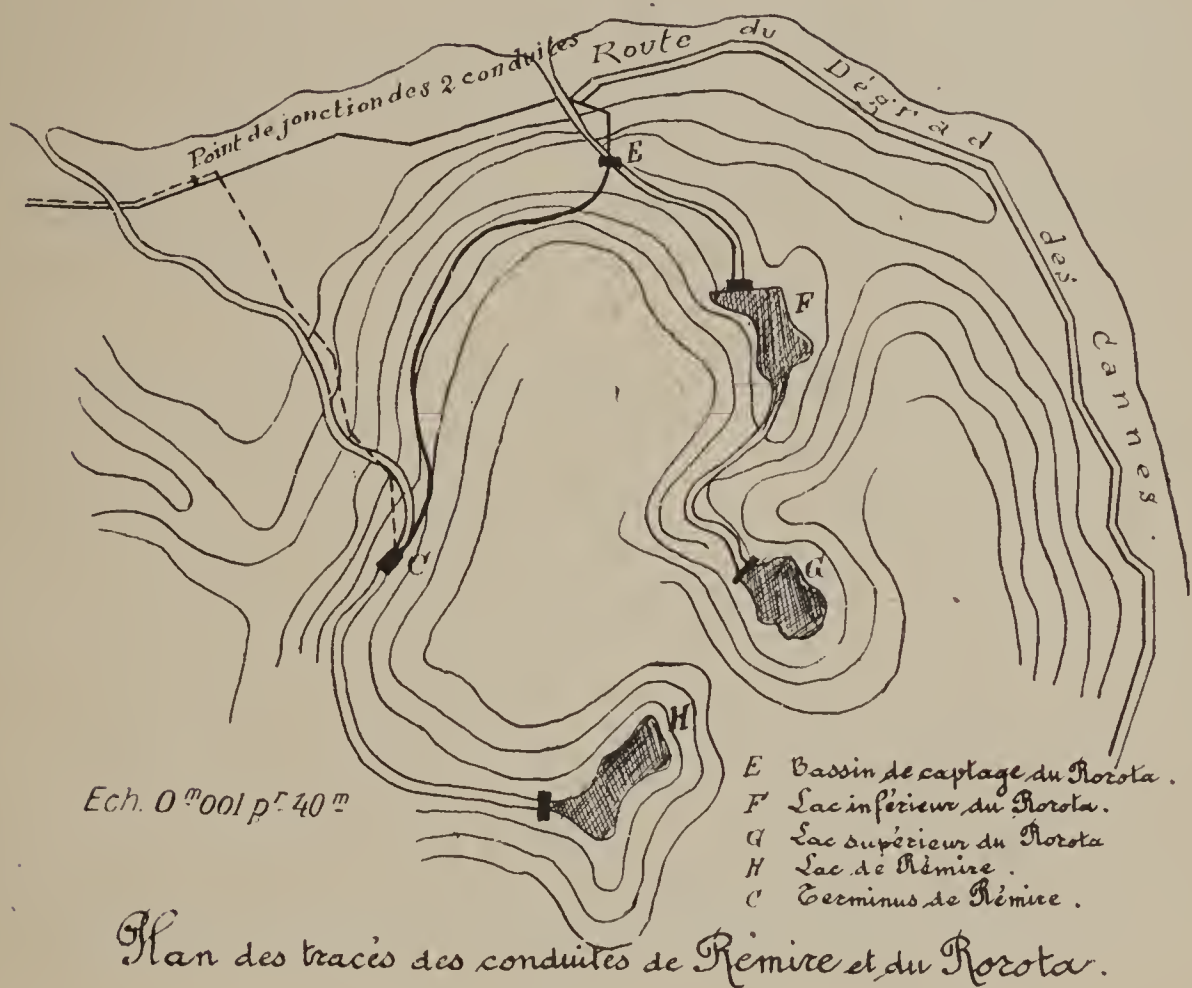 Point de jonction des 2 conduites
Route du Dégrad des Cannes
E
F
G
C
H
Ech. 0m001 pr. 40m
E Bassin de captage du Rorota.
F Lac inférieur du Rorota.
G Lac supérieur du Rorota
H Lac de Rémire.
C Terminus de Rémire.
Plan des tracés des conduites de Rémire et du Rorota.